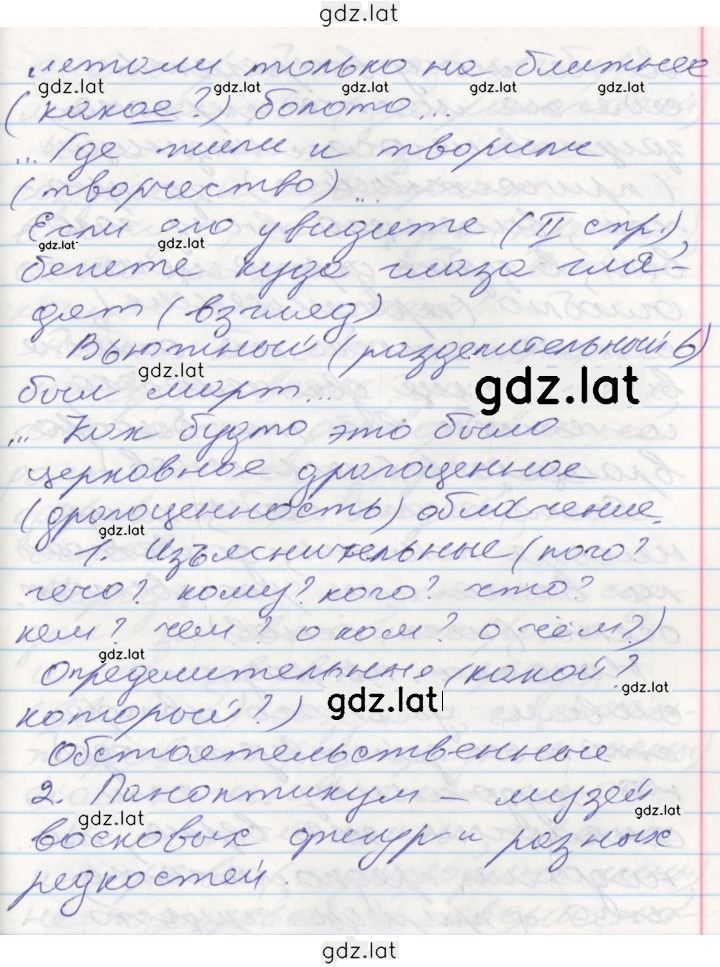 gdz.lat
летали только на ближнее
gdz.lat gdz.lat gdz.lat gdz.lat gdz.lat
(какое?) болото...
... Где жили и творили
(творчество) ...
Если его увидите (II спр.),
gdz.lat gdz.lat
бегите куда глаза гля-
дят (взгляд)
Вьюжный (разделительный ь)
gdz.lat
был март...
gdz.lat
... Как будто это было
церковное драгоценное
(драгоценность) облачение.
gdz.lat
1. Изъяснительные (кого?
чего? кому? кого? что?
кем? чем? о ком? о чём?)
gdz.lat
Определительные (какой?
gdz.lat
который?)
gdz.lat
Обстоятельственные
2. Паноптикум – музей
gdz.lat gdz.lat
восковых фигур и разных
редкостей.
gdz.lat